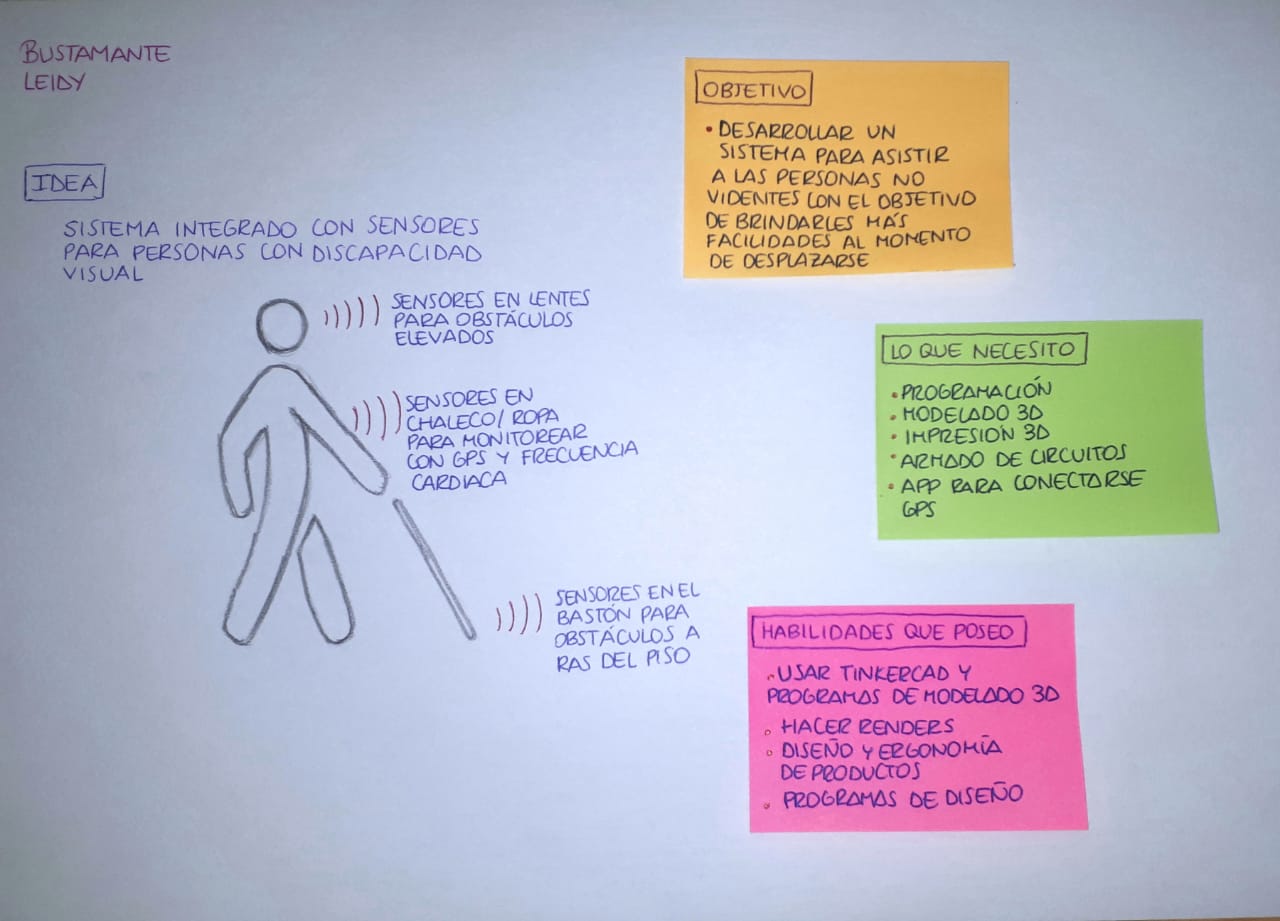 BUSTAMANTE
LEIDY
IDEA
SISTEMA INTEGRADO CON SENSORES
PARA PERSONAS CON DISCAPACIDAD
VISUAL
SENSORES EN LENTES
PARA OBSTÁCULOS
ELEVADOS
SENSORES EN
CHALECO/ROPA
PARA MONITOREAR
CON GPS Y FRECUENCIA
CARDIACA
SENSORES EN EL
BASTÓN PARA
OBSTÁCULOS A
RAS DEL PISO
OBJETIVO
• DESARROLLAR UN
SISTEMA PARA ASISTIR
A LAS PERSONAS NO
VIDENTES CON EL OBJETIVO
DE BRINDARLES MÁS
FACILIDADES AL MOMENTO
DE DESPLAZARSE
LO QUE NECESITO
• PROGRAMACIÓN
• MODELADO 3D
• IMPRESIÓN 3D
• ARMADO DE CIRCUITOS
• APP PARA CONECTARSE
GPS
HABILIDADES QUE POSEO
• USAR TINKERCAD Y
PROGRAMAS DE MODELADO 3D
• HACER RENDERS
• DISEÑO Y ERGONOMÍA
DE PRODUCTOS
• PROGRAMAS DE DISEÑO